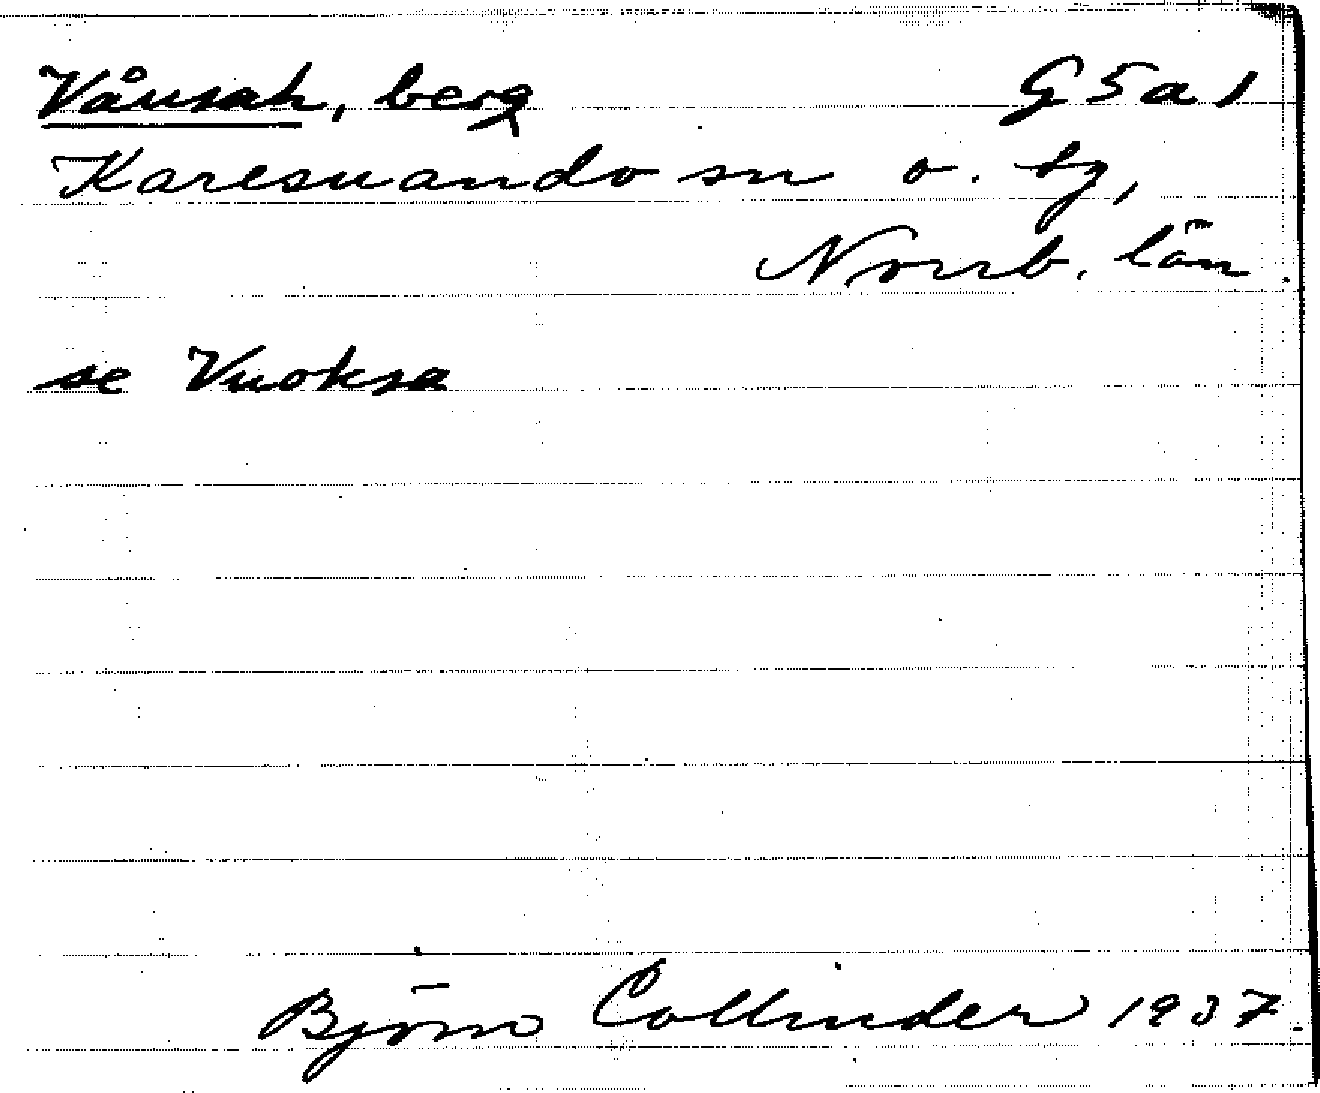 Våusak, berg G5a1
Karesuando sn o. tg,
Norrb. län.
se Vuoksa
Björn Collinder 1937.